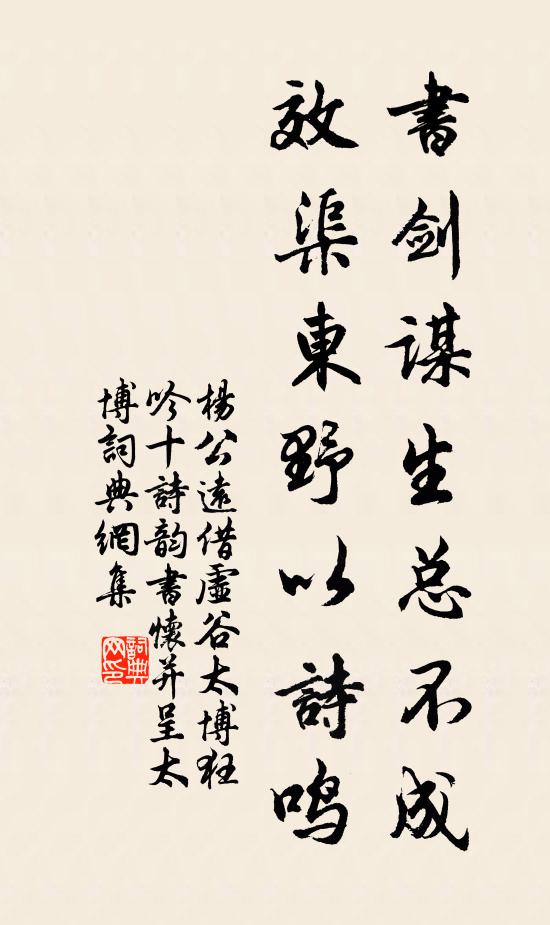 書剑谋生总不成
效渠東野以詩鸣
楊公遠借虛谷太博狂
吟十詩韵書懷并呈太
博詞典網集
詞典
网印